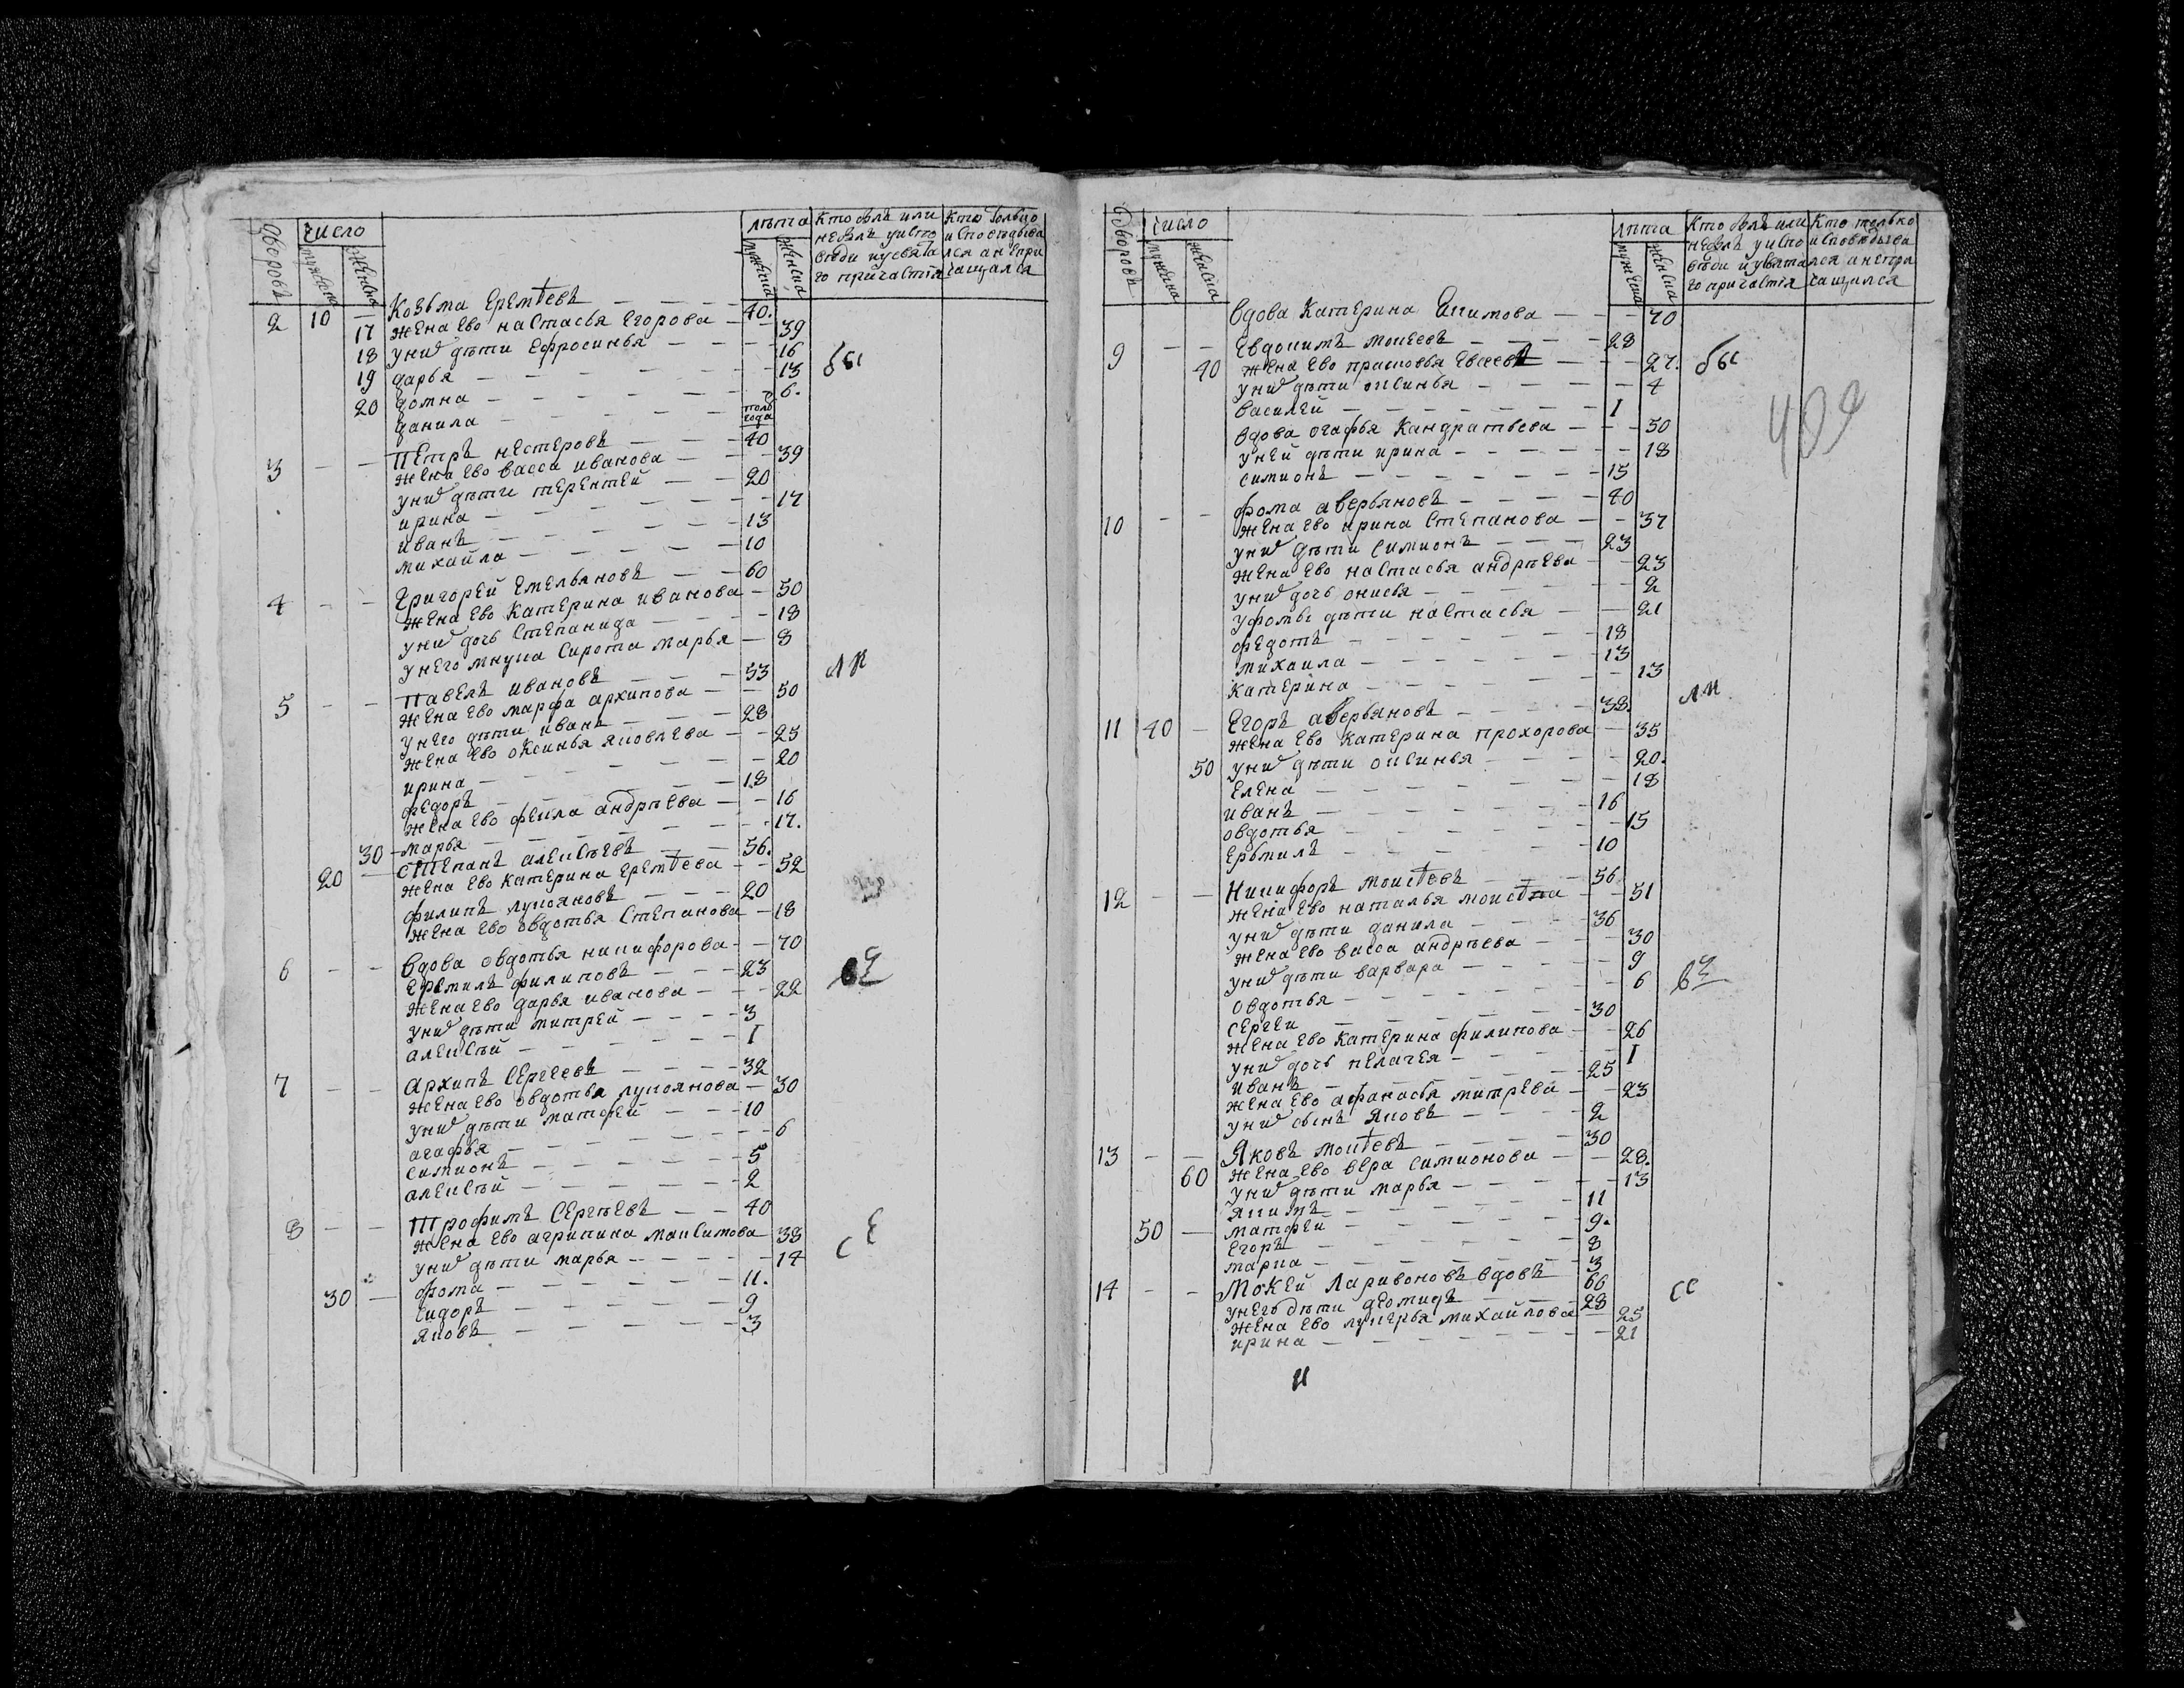 дворовъ число мужеска женска лѣта мужеска женска Кто былъ или небылъ уиспо вѣди иусвята го причастїя Кто только исповѣдыва лся анепри чащался
2 10 — Козьма Еремѣевъ — — — 40.
17 жена ево настасья Егорова — — 39
18 унихъ дѣти Ефросинья — — — 16
19 дарья — — — — — — 13 бы
20 домна — — — — — — 6.
данила — — — — — полъ года
3 — — Петръ нестеровъ — — — 40
жена ево васса иванова — — — 39
унихъ дѣти терентей — — 20
ирина — — — — — — 17
иванъ — — — — — 13
михайла — — — — — 10
4 — — Григорей Емельяновъ — — 60
жена ево катерина иванова — 50
унихъ дочь степанида — — — 18
унего внука сирота марья — 8
5 — — Павелъ ивановъ — — — 53 ли
жена ево марфа архипова — — 50
унего дѣти иванъ — — — 28
жена ево оксинья яковлева — — 25
ирина — — — — — — 20
федоръ — — — — — 18
жена ево фекла андрѣева — — 16
30 — марья — — — — — — 17.
20 — степанъ алексѣевъ — — 56.
жена ево катерина Еремѣева — — 52
филипъ лукояновъ — — — 20
жена ево овдотья степанова — 18
6 — — вдова овдотья никифорова — — 70
Ермилъ филиповъ — — — 23 вѣ
жена ево дарья иванова — — — 22
унихъ дѣти митрей — — — — 3
алексѣй — — — — — — 1
7 — — Архипъ сергеевъ — — — — 32
жена ево овдотья лукоянова — 30
унихъ дѣти матфей — — — 10
агафья — — — — — — — 6
симионъ — — — — — 5
алексѣй — — — — — 2
8 — — Трофимъ сергѣевъ — — 40
жена ево агрипина максимова 38 се
унихъ дѣти марья — — — — — 14
30 — фома — — — — — — 11.
сидоръ — — — — — 9
яковъ — — — — — — 3
дворовъ число мужеска женска лѣта мужеска женска Кто былъ или небылъ уиспо вѣди иусвята го причастїя Кто только исповѣдыва лся анепри чащался
вдова катерина Якимова — — — 70
9 — — Евдокимъ моисеевъ — — — — 28
40 жена ево прасковья Евсеева — — — 27. бы
унихъ дѣти оксинья — — — — — 4
василей — — — — — — — 1
вдова огафья кандратьева — — — 50
уней дѣти ирина — — — — — — 18
симионъ — — — — — — — 15
10 — — фома аверьяновъ — — — — 40
жена ево ирина степанова — — 37
унихъ дѣти симионъ — — — 23
жена ево настасья андрѣева — — 23
унихъ дочь онисья — — — — — 2
уфомы дѣти настасья — — — 21
федотъ — — — — — — — 18
михаила — — — — — — 13
катерина — — — — — — — 13
11 40 — Егоръ аверьяновъ — — — — 38. ли
жена ево катерина прохорова — 35
50 унихъ дѣти оксинья — — — — — 20.
Елена — — — — — — — 18
иванъ — — — — — — 16
овдотья — — — — — — — 15
Ермилъ — — — — — — 10
12 — — Никифоръ моисѣевъ — — — 56
жена ево наталья моисѣева — — 51
унихъ дѣти данила — — — — 36
жена ево васса андрѣева — — — 30
унихъ дѣти варвара — — — — — 9
Овдотья — — — — — — — 6 вѣ
сергеи — — — — — — — 30
жена ево катерина филипова — — 26
унихъ дочь пелагея — — — — — 1
иванъ — — — — — — — 25
жена ево афанасья митрева — — 23
унихъ сынъ яковъ — — — — 2
13 — — Яковъ моисѣевъ — — — — 30
60 жена ево вера симионова — — — 28.
унихъ дѣти марья — — — — — — 13
якимъ — — — — — — — 11
50 — матфей — — — — — — 9.
Егоръ — — — — — — — 8
марка — — — — — — — 3
14 — — Мокей Ларивоновъ вдовъ 66
унего дѣти деомидъ — — — 28 сс
жена ево лукерья михайлова — 25
ирина — — — — — — — — 21
и